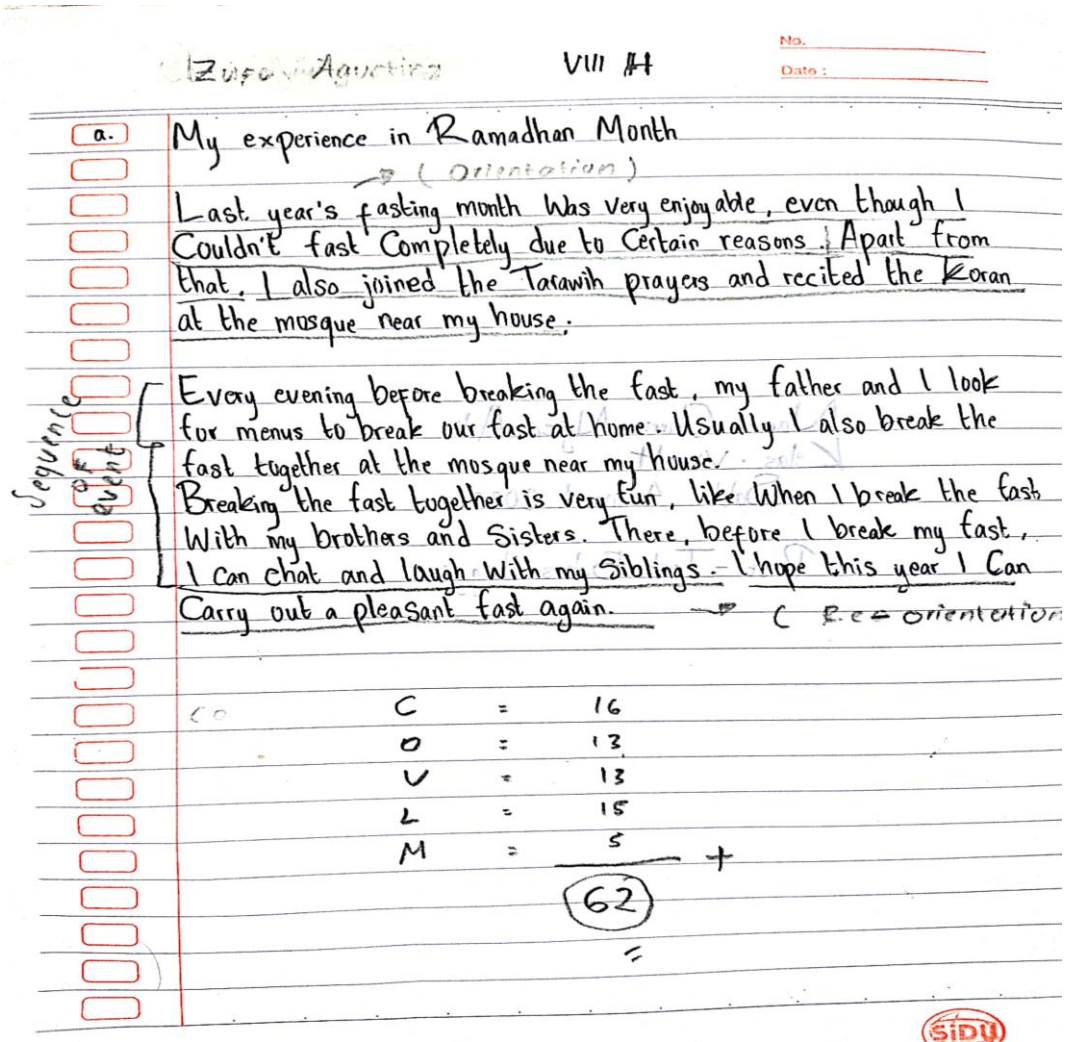 VIII H
No.
Date :
a.
My experience in Ramadhan Month
( Orientation )
Last year's fasting month Was very enjoyable, even though I
Couldn't fast Completely due to Certain reasons. Apart from
that, I also joined the Tarawih prayers and recited the Koran
at the mosque near my house.
Sequence of event
Every evening before breaking the fast, my father and I look
for menus to break our fast at home. Usually I also break the
fast together at the mosque near my house.
Breaking the fast together is very fun, like When I break the fast
With my brothers and Sisters. There, before I break my fast,
I Can chat and laugh With my Siblings. I hope this year I Can
Carry out a pleasant fast again.
( Re-orientation
C = 16
O = 13
V = 13
L = 15
M = 5 +
62
SiDU